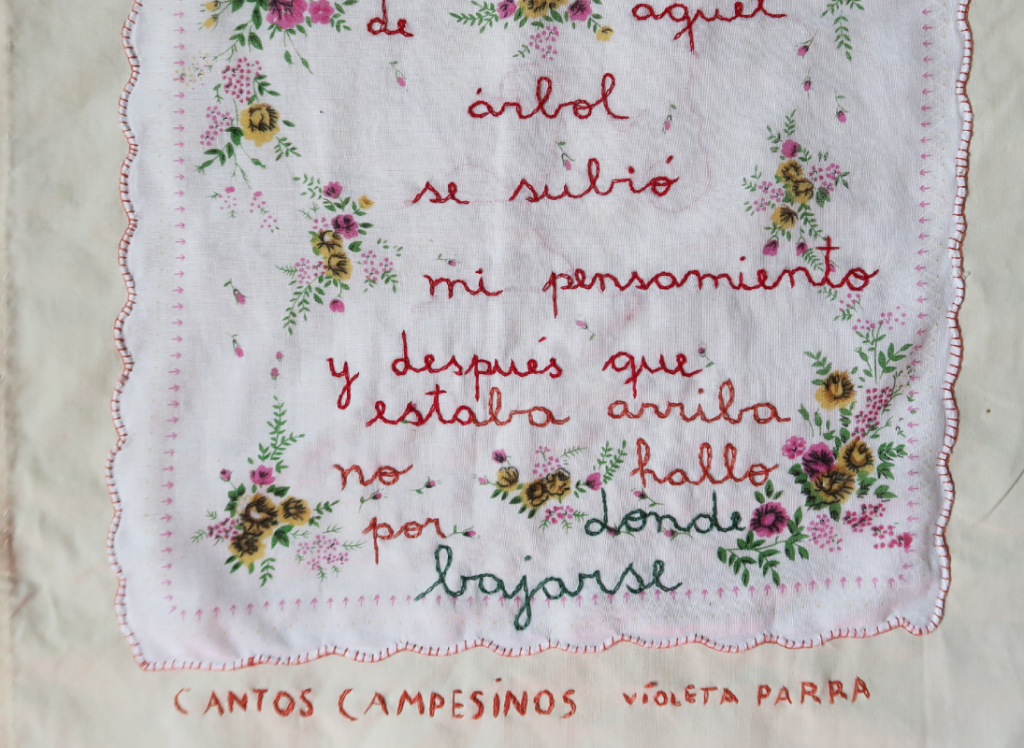 de aquel
árbol
se subió
mi pensamiento
y después que
estaba arriba
no hallo
por donde
bajarse
CANTOS CAMPESINOS VIOLETA PARRA